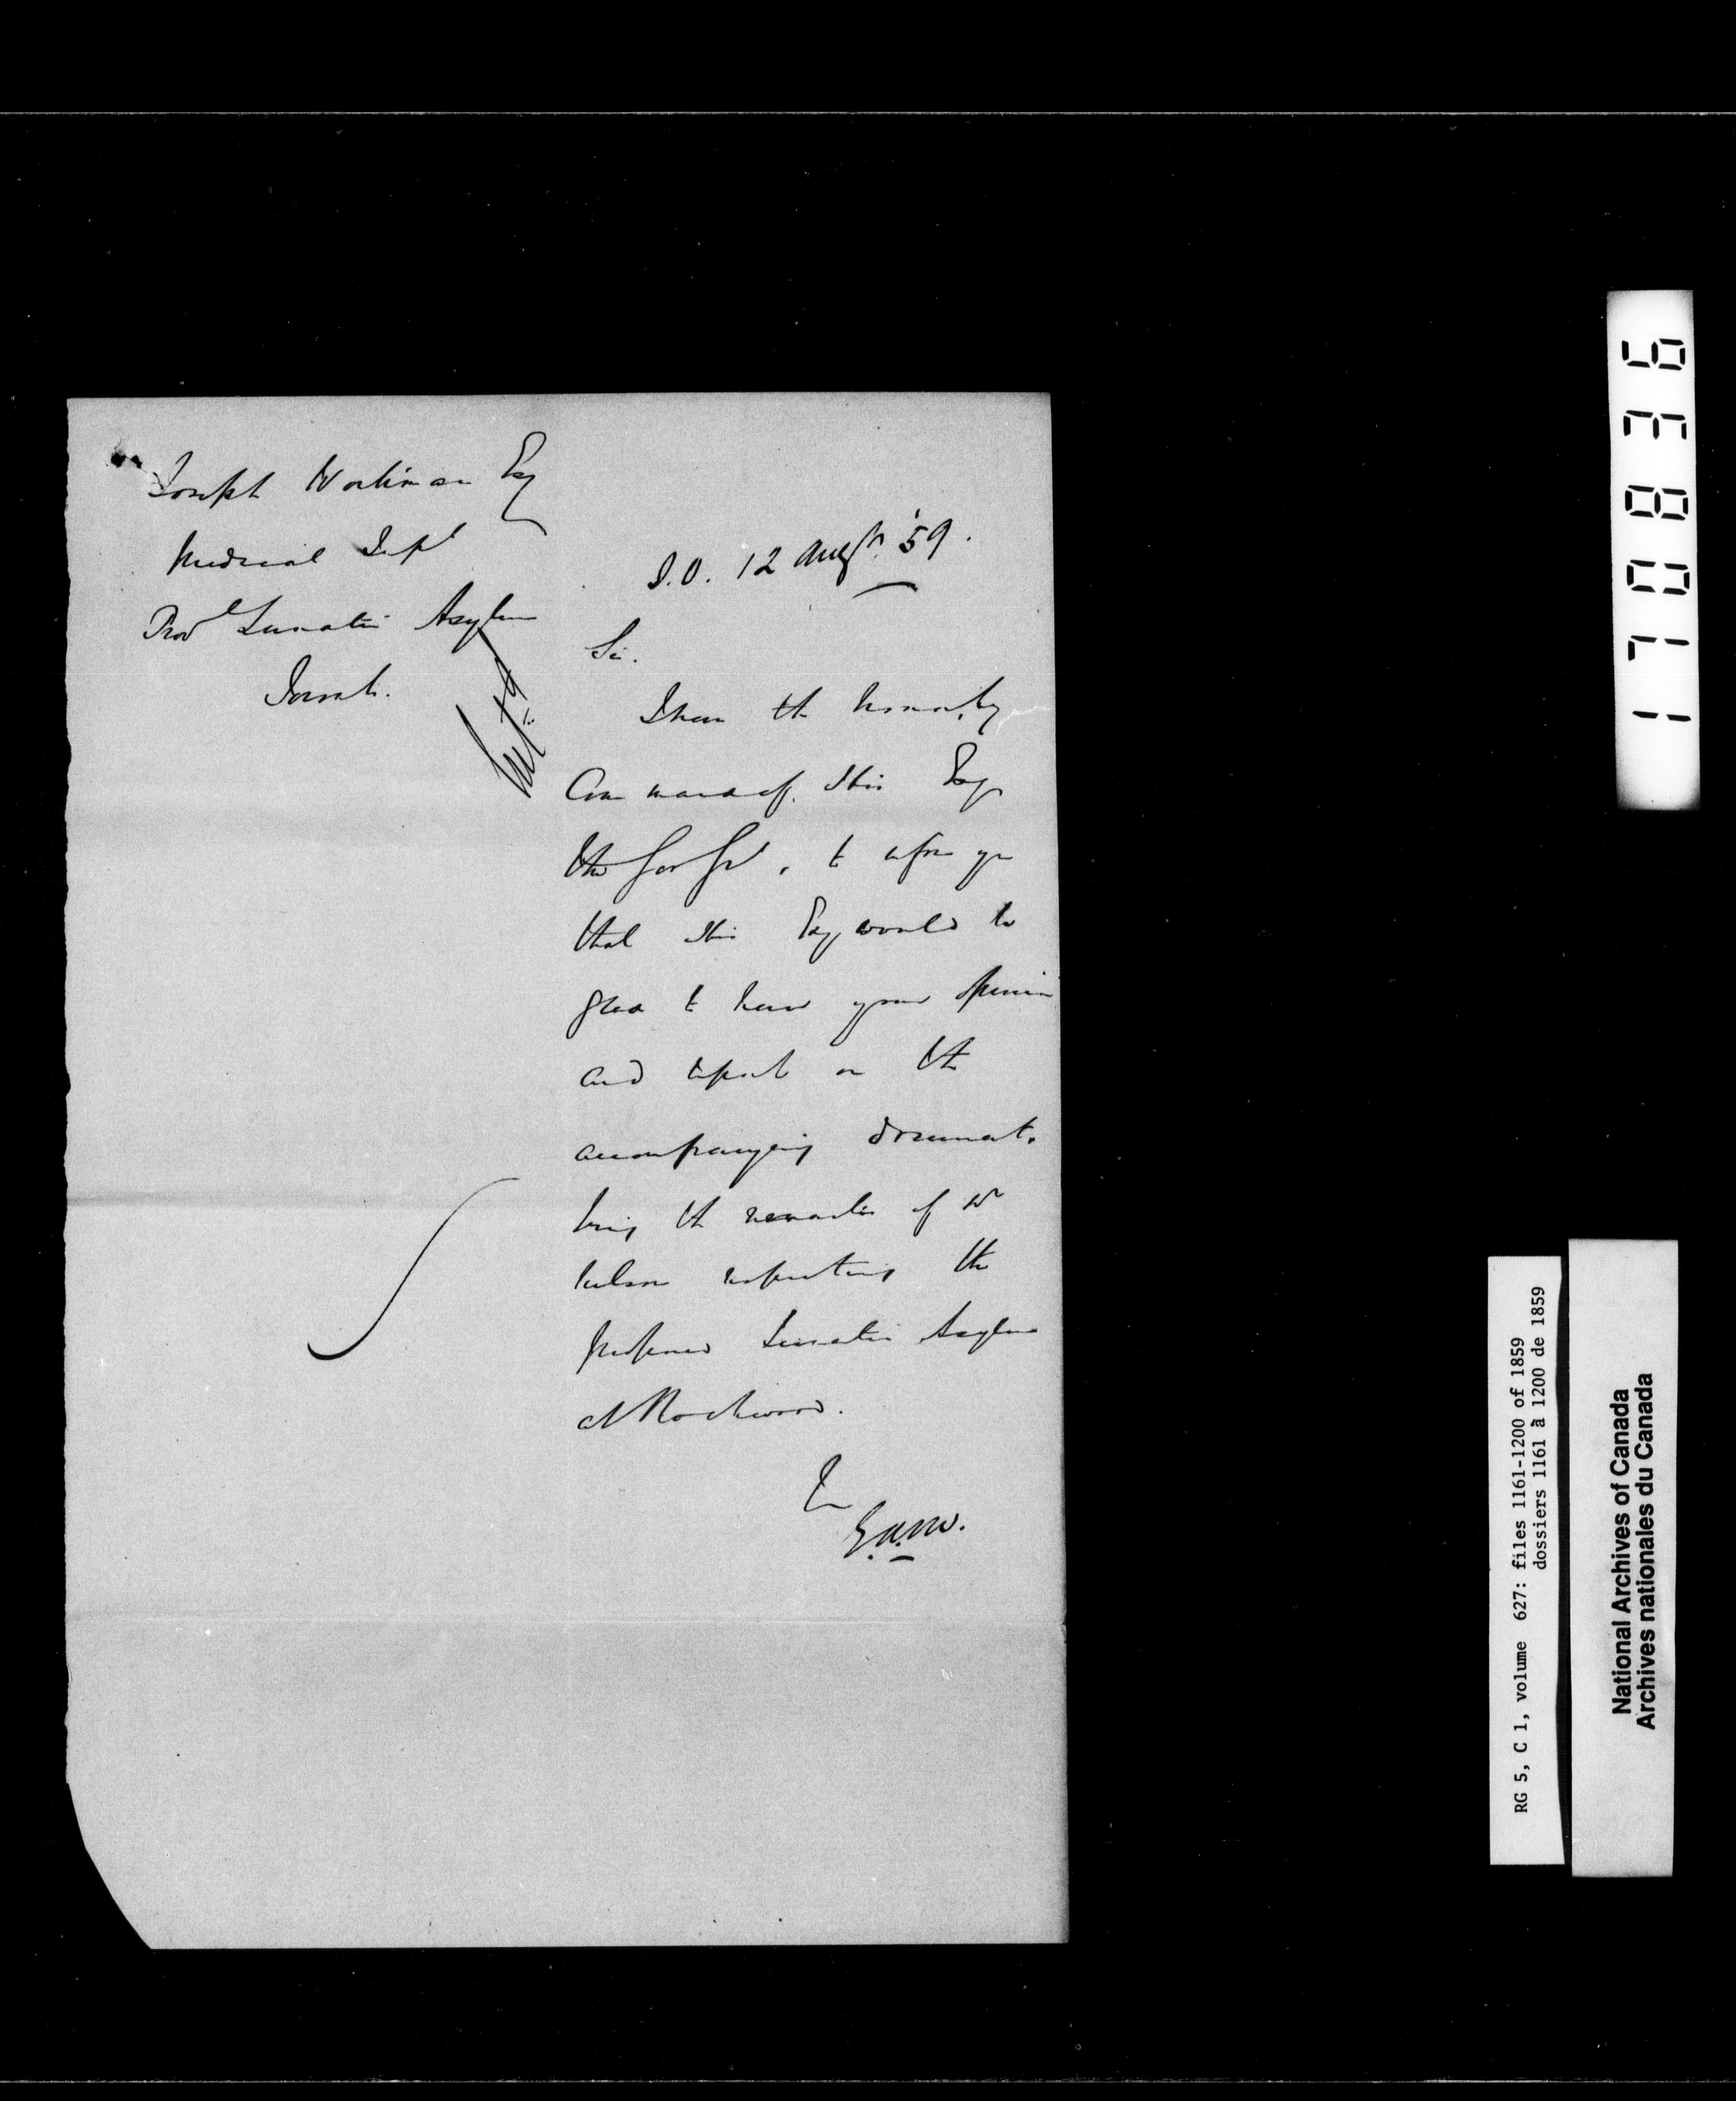 Joseph Workman Esq
Medical Supt
Provl Lunatic Asylum
Toronto.
S.O. 12 Augst. '59.
Sir.
I have the honor, by
Command of His Excy
the Gov Genl, to inform you
that His Excy would be
glad to have your opinion
and report on the
accompanying document.
being the remarks of Dr
Nelson respecting the
proposed Lunatic Asylum
at Rockwood.
E.A.M.
170836
RG 5, C 1, volume 627: files 1161-1200 of 1859
dossiers 1161 à 1200 de 1859
National Archives of Canada
Archives nationales du Canada